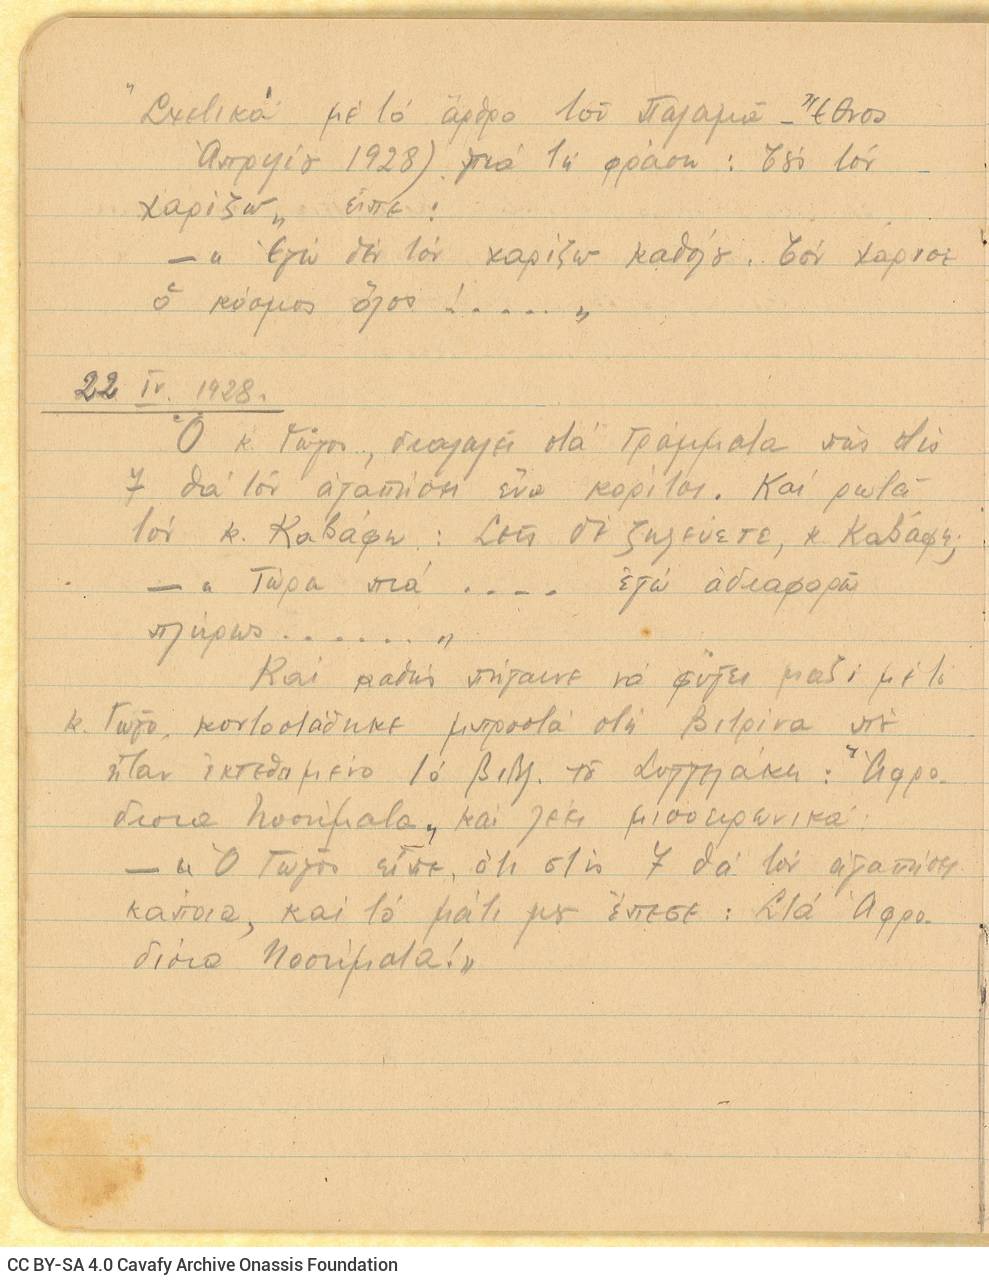 "Σχετικά με τό ἄρθρο τοῦ Παλαμᾶ – "Ἔθνος
Ἀπριλίου 1928) γιά τή φράση : Τόν
χαρίζω„ εἶπε :
— « Ἐγώ δέν τόν χαρίζω καθόλου. Τόν χάρισε
ὁ κόσμος ὅλος ! . . . . . „
22 IV. 1928.
Ὁ κ. Γιῶγος, διαλαλεῖ στά Γράμματα πώς στίς
7 θά τόν ἀγαπήσει ἕνα κορίτσι. Καί ρωτᾶ
τόν κ. Καβάφη : Σεῖς δέ ζηλεύετε, κ. Καβάφη;
— « Τώρα πιά . . . . ἐγώ ἀδιαφορῶ
πλήρως . . . . . . . „
Καί καθώς πήγαινε νά φύγει μαζί μέ τό
κ. κοντοστάθηκε μπροστά στή βιτρίνα πού
ἦταν ἐκτεθημένο τό βιβλ. τοῦ : "Ἀφρο-
δισια Νοσήματα„ καί λέει μισοειρωνικά :
— « Ὁ εἶπε, ὅτι στίς 7 θά τόν ἀγαπήσει
κάποια, καί τό μάτι μου ἔπεσε : Στά Ἀφρο-
δίσια Νοσήματα!„
CC BY-SA 4.0 Cavafy Archive Onassis Foundation